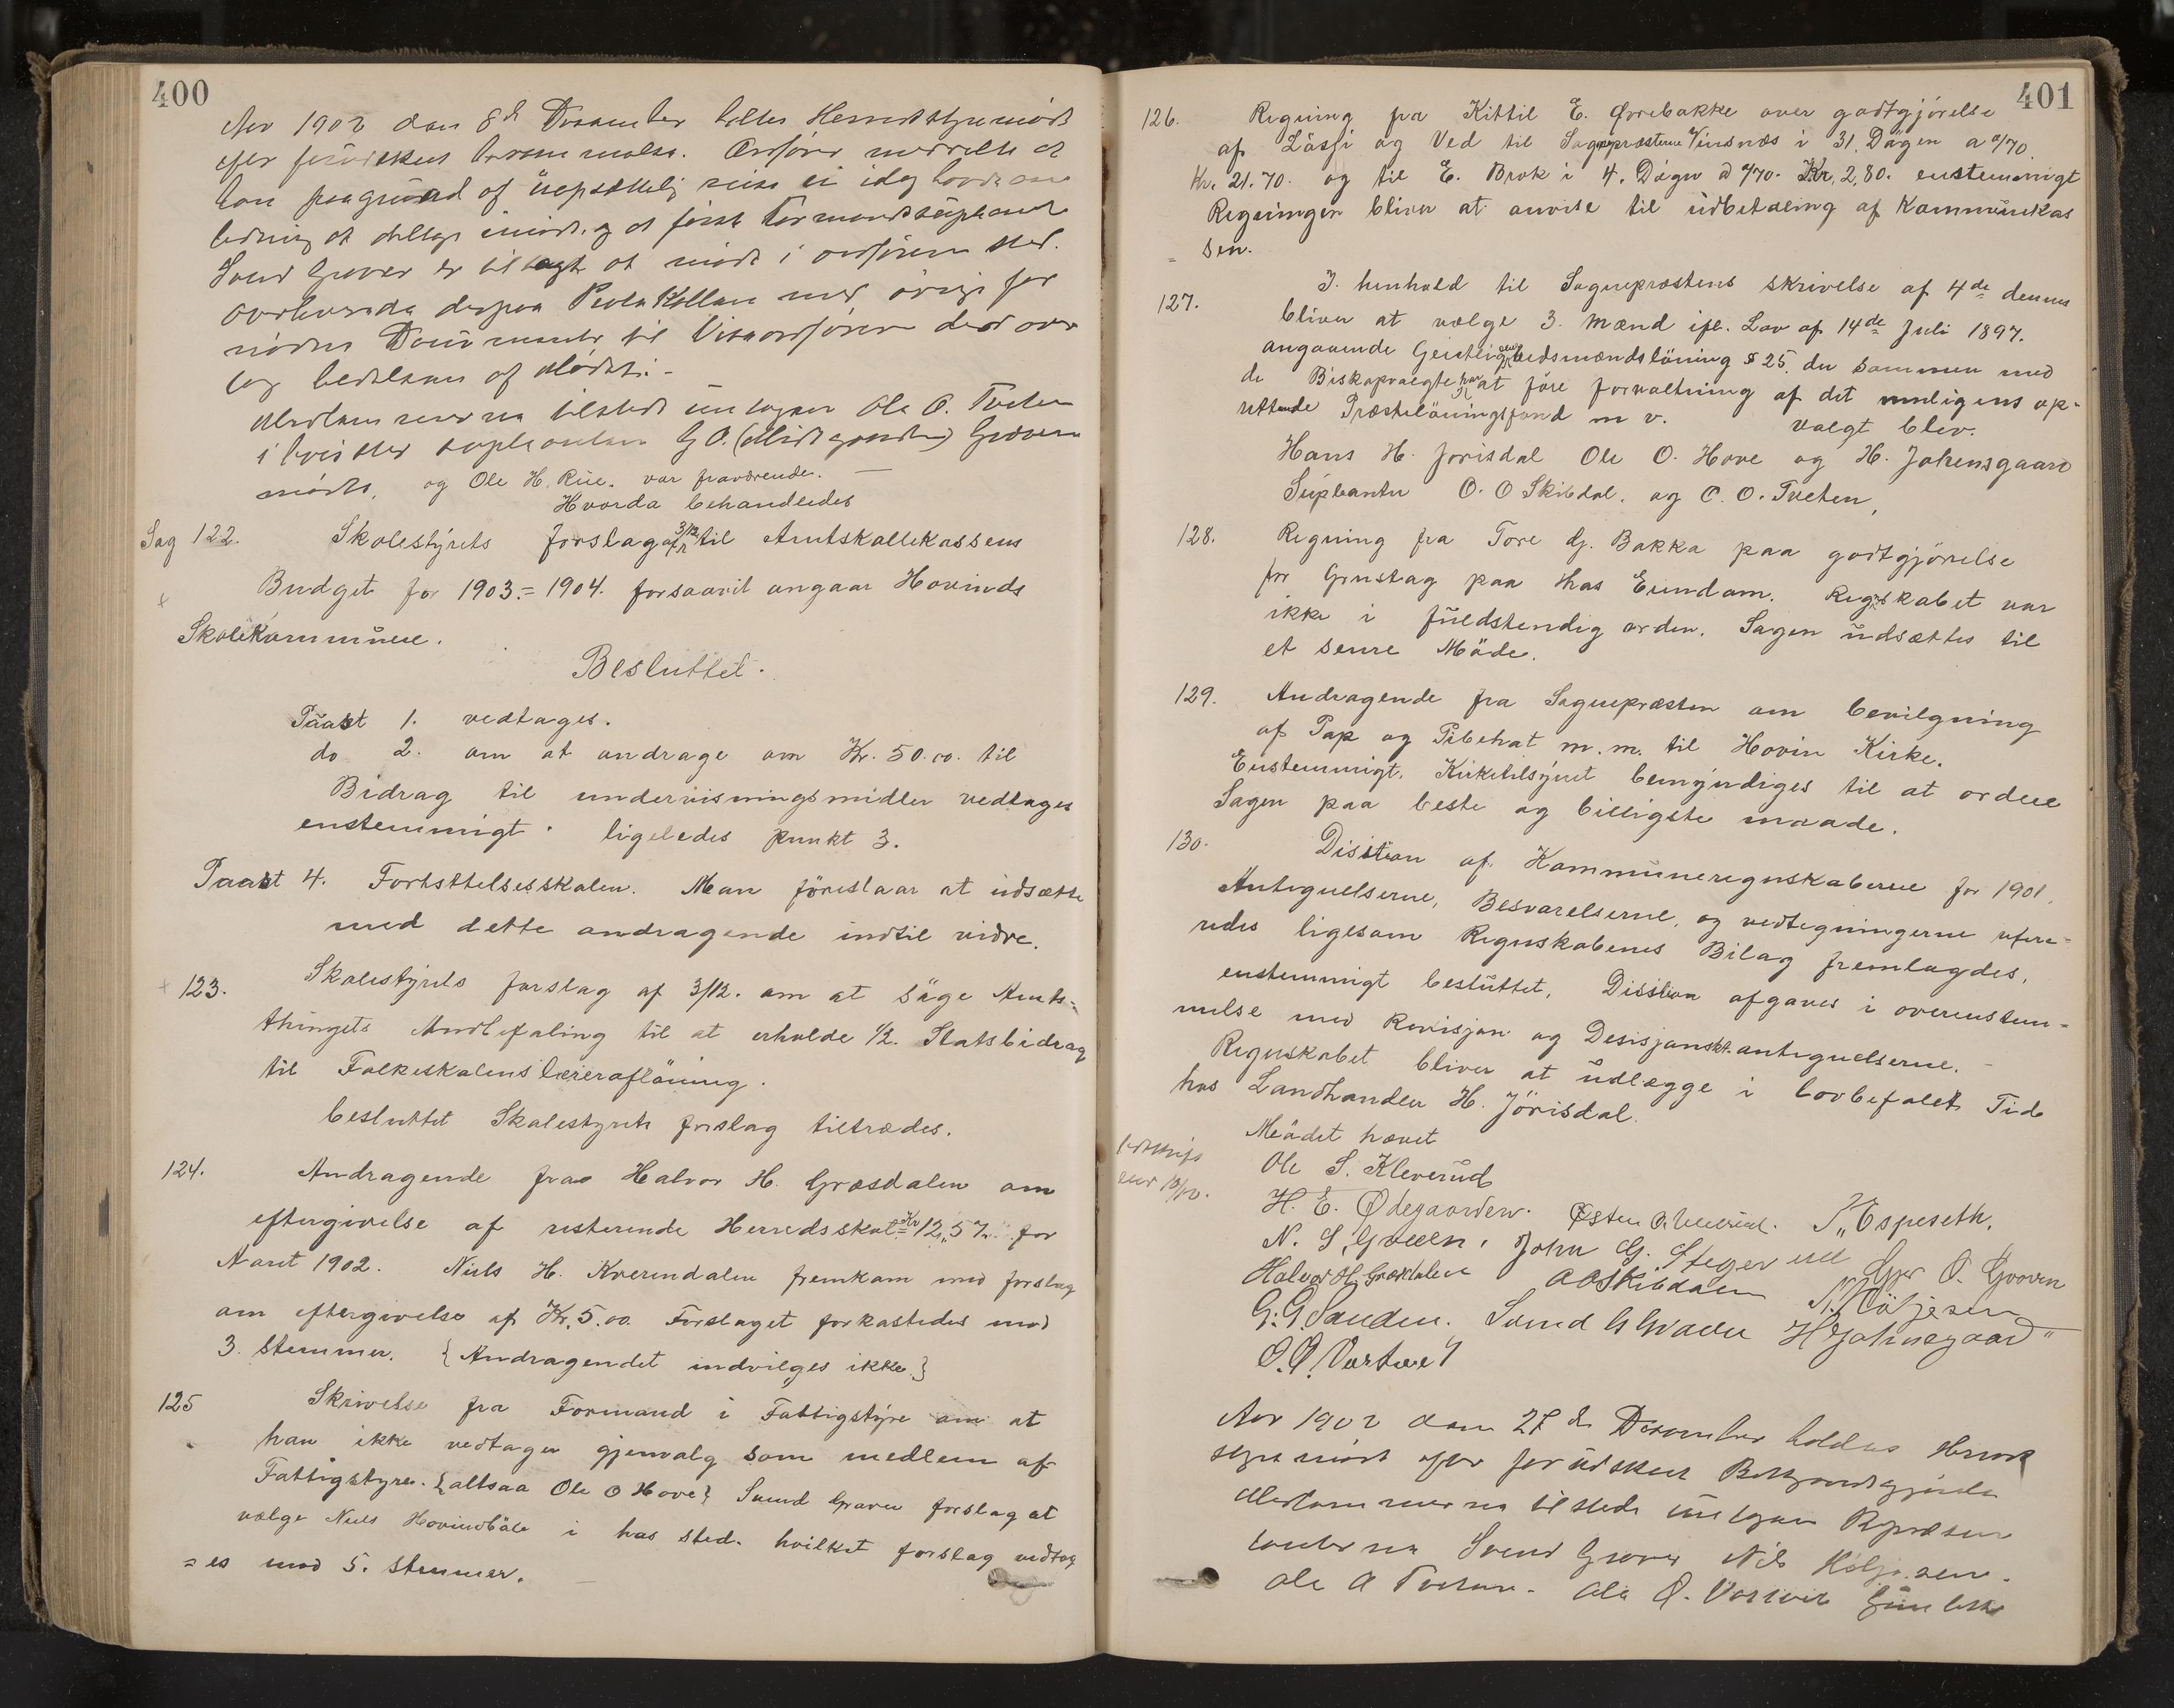 400
Aar 1902 den 8de December holdtes Herredstyremöde
efter forudskeet berammelse. Ordförer meddelte at
han paagrund af uopsættelig reise ei idag havde an
ledning at deltage i möde, og at förste Formandsupleant
Svend Graver er tilsagt at möde i ordförerens sted.
overleverede derpaa Protokollen med övrige for
nödne Documenter til Viceordföreren der over
tog ledelsen af Mödet. -
Medlemmerne tilstede undtagen Ole O. Tveten
i hvis sted supleanten G O. (Midtgaarden) Graven
mödte, og Ole H. Rue. var fraværende. —
Hvorda behandledes
Sag 122. Skolestÿrets forslag af 3/12 til Amtskollekassens
Budget for 1903 = 1904. forsaavit angaar Hovinds
Skolekommune.
Besluttet.
Paast 1. vedtages.
do 2. om at andrage om Kr. 50.00. til
Bidrag til undervisningsmidler vedtages
enstemmigt. ligeledes punkt 3.
Paast 4. Fortsttelsesskolen. Man föreslaar at udsætte
med dette andragende indtil vidre.
123. Skolestÿrets forslag af 3/12. om at söge Amts=
thingets Andbefaling til at erholde 1/2. Statsbidrag
til Folkeskolens læreraflöning.
besluttet Skolestyrets forslag tiltrædes.
124. Andragende fra Halvor H. Græsdalen om
eftergivelse af resterende Herredsskat = Kr 12,57. for
Aaret 1902. Niels H. Kverndalen fremkom med forslag
om eftergivelse af Kr. 5.00. Forslaget forkastedes mod
3. stemmer. {Andragendet indvilges ikke.}
125 Skrivelse fra Formand i Fattigstÿre om at
han ikke vedtager gjenvalg som medlem af
Fattigstyre. {altsaa Ole O Hove} Svend Graver forslag at
vælge Niels Hovindböle i has sted. hvilket forslag vedtog
= es mod 5. stemmer. —
401
126. Regning fra Kittil E. Örrebakke over godtgjörelse
af Låssji og Ved til Sognepræsterne Vinsnæs i 31. Dögen a 0/70.
Kr. 21.70. og til E. Brok i 4. Dögn a 0/70. Kr. 2,80. enstemmigt
Regningen bliver at anvise til udbetaling af Kommunekas
= sen.
127. I. henhold til Sognepræstens skrivelse af 4de dennes
bliver at vælge 3. Mænd ifl. Lov af 14de Juli 1897.
angaaende Geistlighedsmændslöning § 25. der sammen med
de Biskopvalgte har at före forvaltning af det muligens op=
rettende Præstelöningsfond m v. valgt blev.
Hans H. Jorisdal Ole O. Hove og H. Johensgaard
Supleanter O. O Skibdal. og O. O. Tveten,
128. Regning fra Tore G. Bakka paa godtgjörelse
for Grustag paa Has Eiendom. Regnskabet var
ikke i fuldstendig orden. Sagen udsættes til
et senre Möde.
129. Andragende fra Sognepræsten om bevilgning
af Pap og Pibehat m.m. til Hovin Kirke.
Enstemmigt. Kirketilsÿnet bemÿndiges til at ordne
Sagen paa beste og billigste maade.
130. Disition af. Kommuneregnskaberne for 1901.
Antegnelserne, Besvarelserne, og vedtegningerne refere=
redes ligesom Regnskabenes Bilag fremlagdes.
enstemmigt besluttet. Disition afgaves i overenstem=
melse med Revisjon og Desisjonskt. antegnelserne. -
Regnskabet bliver at udlægge i lovbefalet Tid
hos Landhandler H. Jörisdal.
Mödet hævet
Ole S. Kleverud
H. E. Ödegaarden. K. Espeseth.
N. S. Graven, John G. Stegerud Gjer O. Graven
Halvor H. Græsdalen O O Skibdalen N. Höljesen
G. G Sanden. Svend G Graver H Johnsgaard
O. O. Vartveit
Aar 1902 den 27de December holdtes Herred
styremöde efter forudskeet Bekjendtgjörelse
Medlemmerne tilstede undtagen Repræsen
tanterne Svend Graver Nils Höljesen.
Ole O Tveten. Ole O. Vartveit